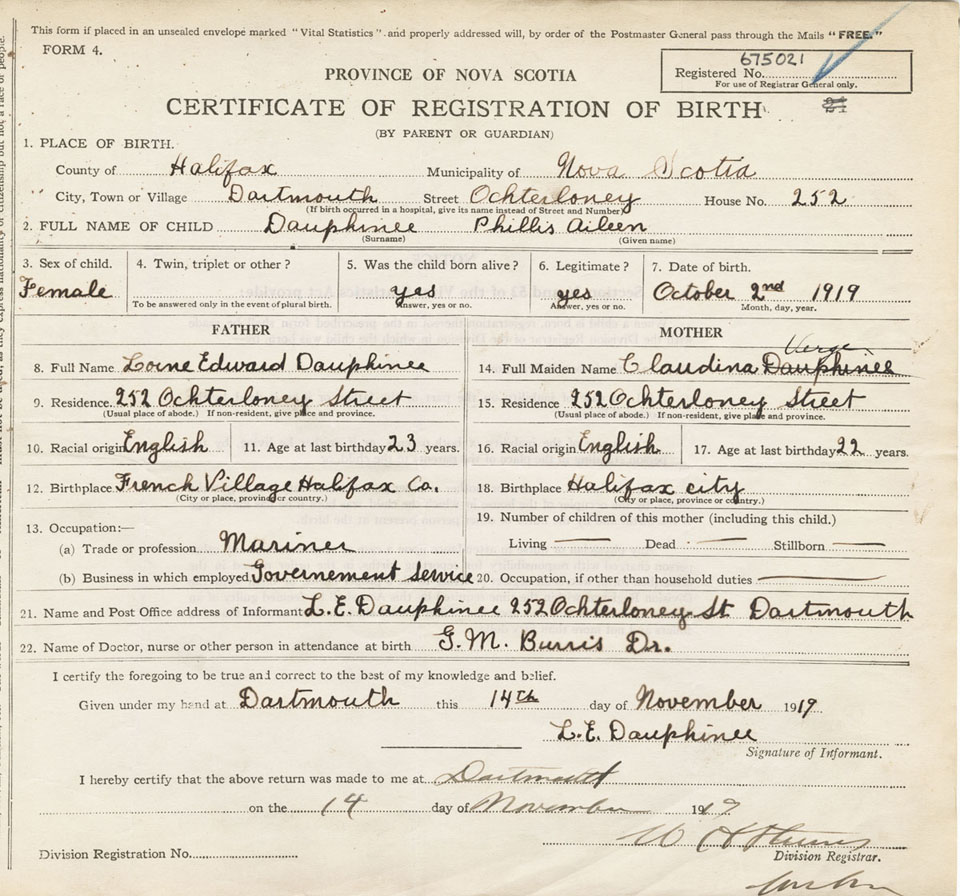 This form if placed in an unsealed envelope marked "Vital Statistics" and properly addressed will, by order of the Postmaster General pass through the Mails "FREE."
FORM 4.
675021
Registered No.
For use of Registrar General only.
PROVINCE OF NOVA SCOTIA
CERTIFICATE OF REGISTRATION OF BIRTH
(BY PARENT OR GUARDIAN)
1. PLACE OF BIRTH.
County of Halifax Municipality of Nova Scotia
City, Town or Village Dartmouth Street Ochterloney House No. 252
(If birth occurred in a hospital, give its name instead of Street and Number)
2. FULL NAME OF CHILD Dauphinee Phillis Aileen
(Surname) (Given name)
3. Sex of child. 4. Twin, triplet or other? 5. Was the child born alive? 6. Legitimate? 7. Date of birth.
Female yes yes October 2nd 1919
To be answered only in the event of plural birth. Answer, yes or no. Answer, yes or no. Month, day, year.
FATHER
8. Full Name Lorne Edward Dauphinee
9. Residence. 252 Ochterloney Street
(Usual place of abode.) If non-resident, give place and province.
10. Racial origin English 11. Age at last birthday 23 years.
12. Birthplace French Village Halifax Co.
(City or place, province or country.)
13. Occupation:—
(a) Trade or profession Mariner
(b) Business in which employed Governement Service
MOTHER
Verge
14. Full Maiden Name Claudina Dauphinee
15. Residence 252 Ochterloney Street
(Usual place of abode.) If non-resident, give place and province.
16. Racial origin English 17. Age at last birthday 22 years.
18. Birthplace Halifax city
(City or place, province or country.)
19. Number of children of this mother (including this child.)
Living — Dead — Stillborn —
20. Occupation, if other than household duties —
21. Name and Post Office address of Informant L.E. Dauphinee 252 Ochterloney St Dartmouth
22. Name of Doctor, nurse or other person in attendance at birth G.M. Burris Dr.
I certify the foregoing to be true and correct to the best of my knowledge and belief.
Given under my hand at Dartmouth this 14th day of November 1919
L.E. Dauphinee
Signature of Informant.
I hereby certify that the above return was made to me at Dartmouth
on the 14 day of November 1919
Division Registration No.
Division Registrar.